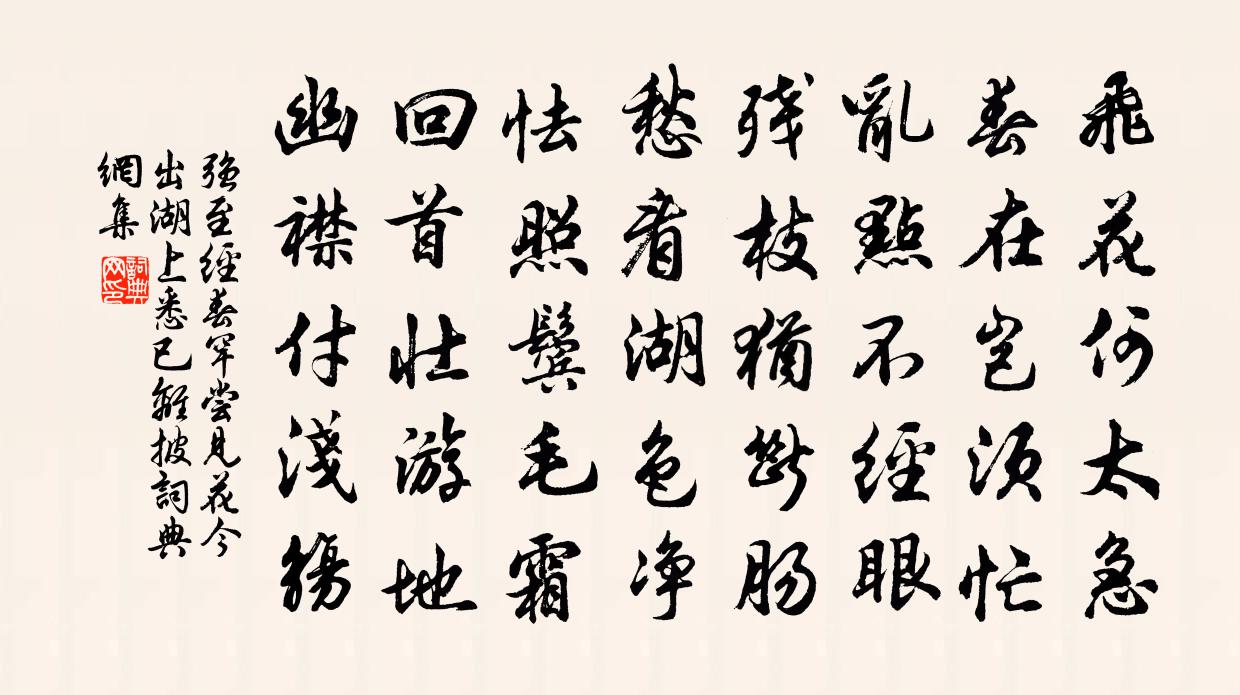 飛花何太急
春在豈須忙
亂點不經眼
殘枝猶斷腸
愁看湖色净
怯照鬢毛霜
回首壯游地
幽襟付淺觴
强至經春罕嘗見花今
出湖上悉已離披詞典
網集
詞典
网印